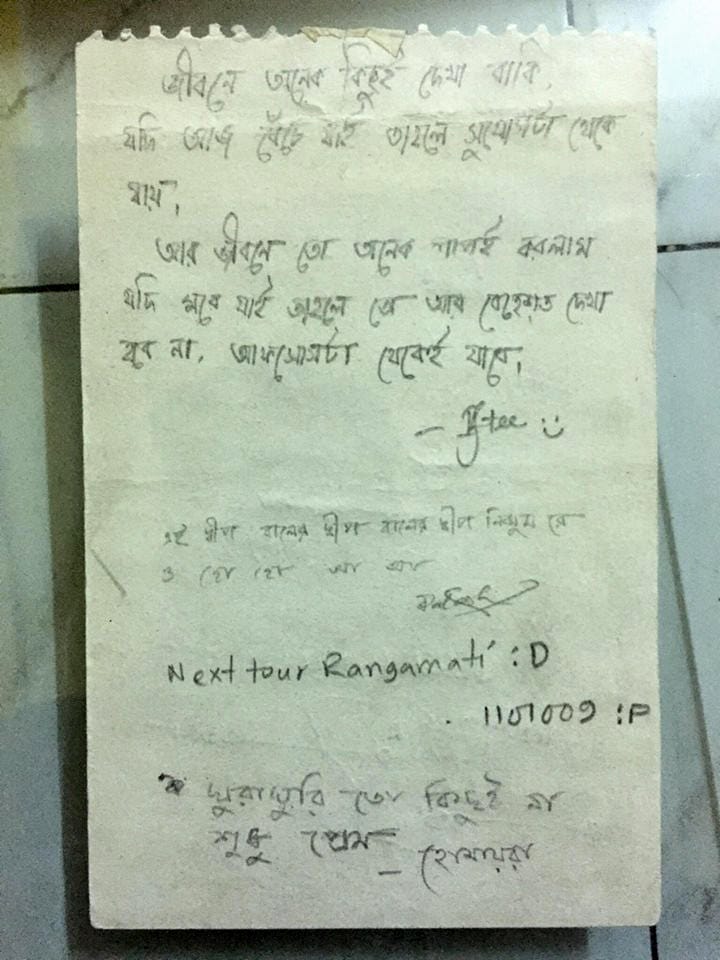 জীবনে অনেক কিছুই দেখা বাকি,
যদি আজ বেঁচে যাই তাহলে সুযোগটা থেকে
যায়।
আর জীবনে তো অনেক পাপই করলাম
যদি মরে যাই তাহলে তো আর বেহেশত দেখা
হবে না, আফসোসটা থেকেই যাবে।
এই দ্বীপ বালের দ্বীপ বালের দ্বীপ নিঝুম রে
ও হো হো আ আ
Next tour Rangamati :D
1101009 :P
ঘুরাঘুরি তো কিছুই না
শুধু প্রেম
– হোমায়রা